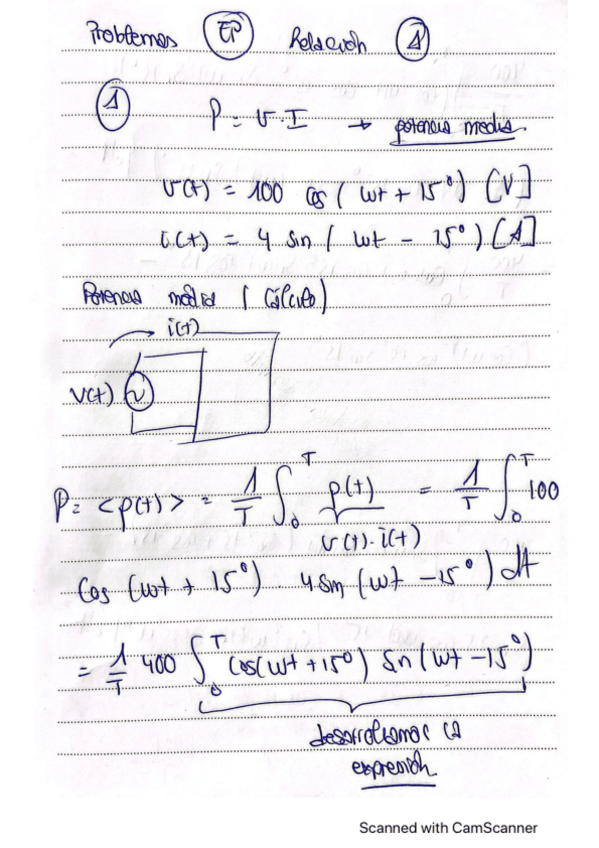 Problemas EP Relación 1
1
P = v·I → potencia media
v(t) = 100 cos(wt + 15°) [V]
i(t) = 4 sin(wt - 15°) [A]
Potencia media (Cálculo)
i(t)
v(t)
P = <p(t)> = 1/T ∫₀ᵀ p(t) = 1/T ∫₀ᵀ 100
v(t)·i(t)
cos (wt + 15°) · 4 sin (wt - 15°) dt
= 1/T 400 ∫₀ᵀ cos(wt + 15°) sin(wt - 15°)
desarrollamos la
expresión
Scanned with CamScanner